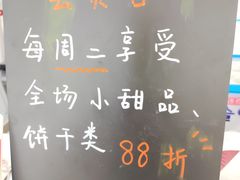 会员日
每周二享受
全场小甜品、
饼干类 88折